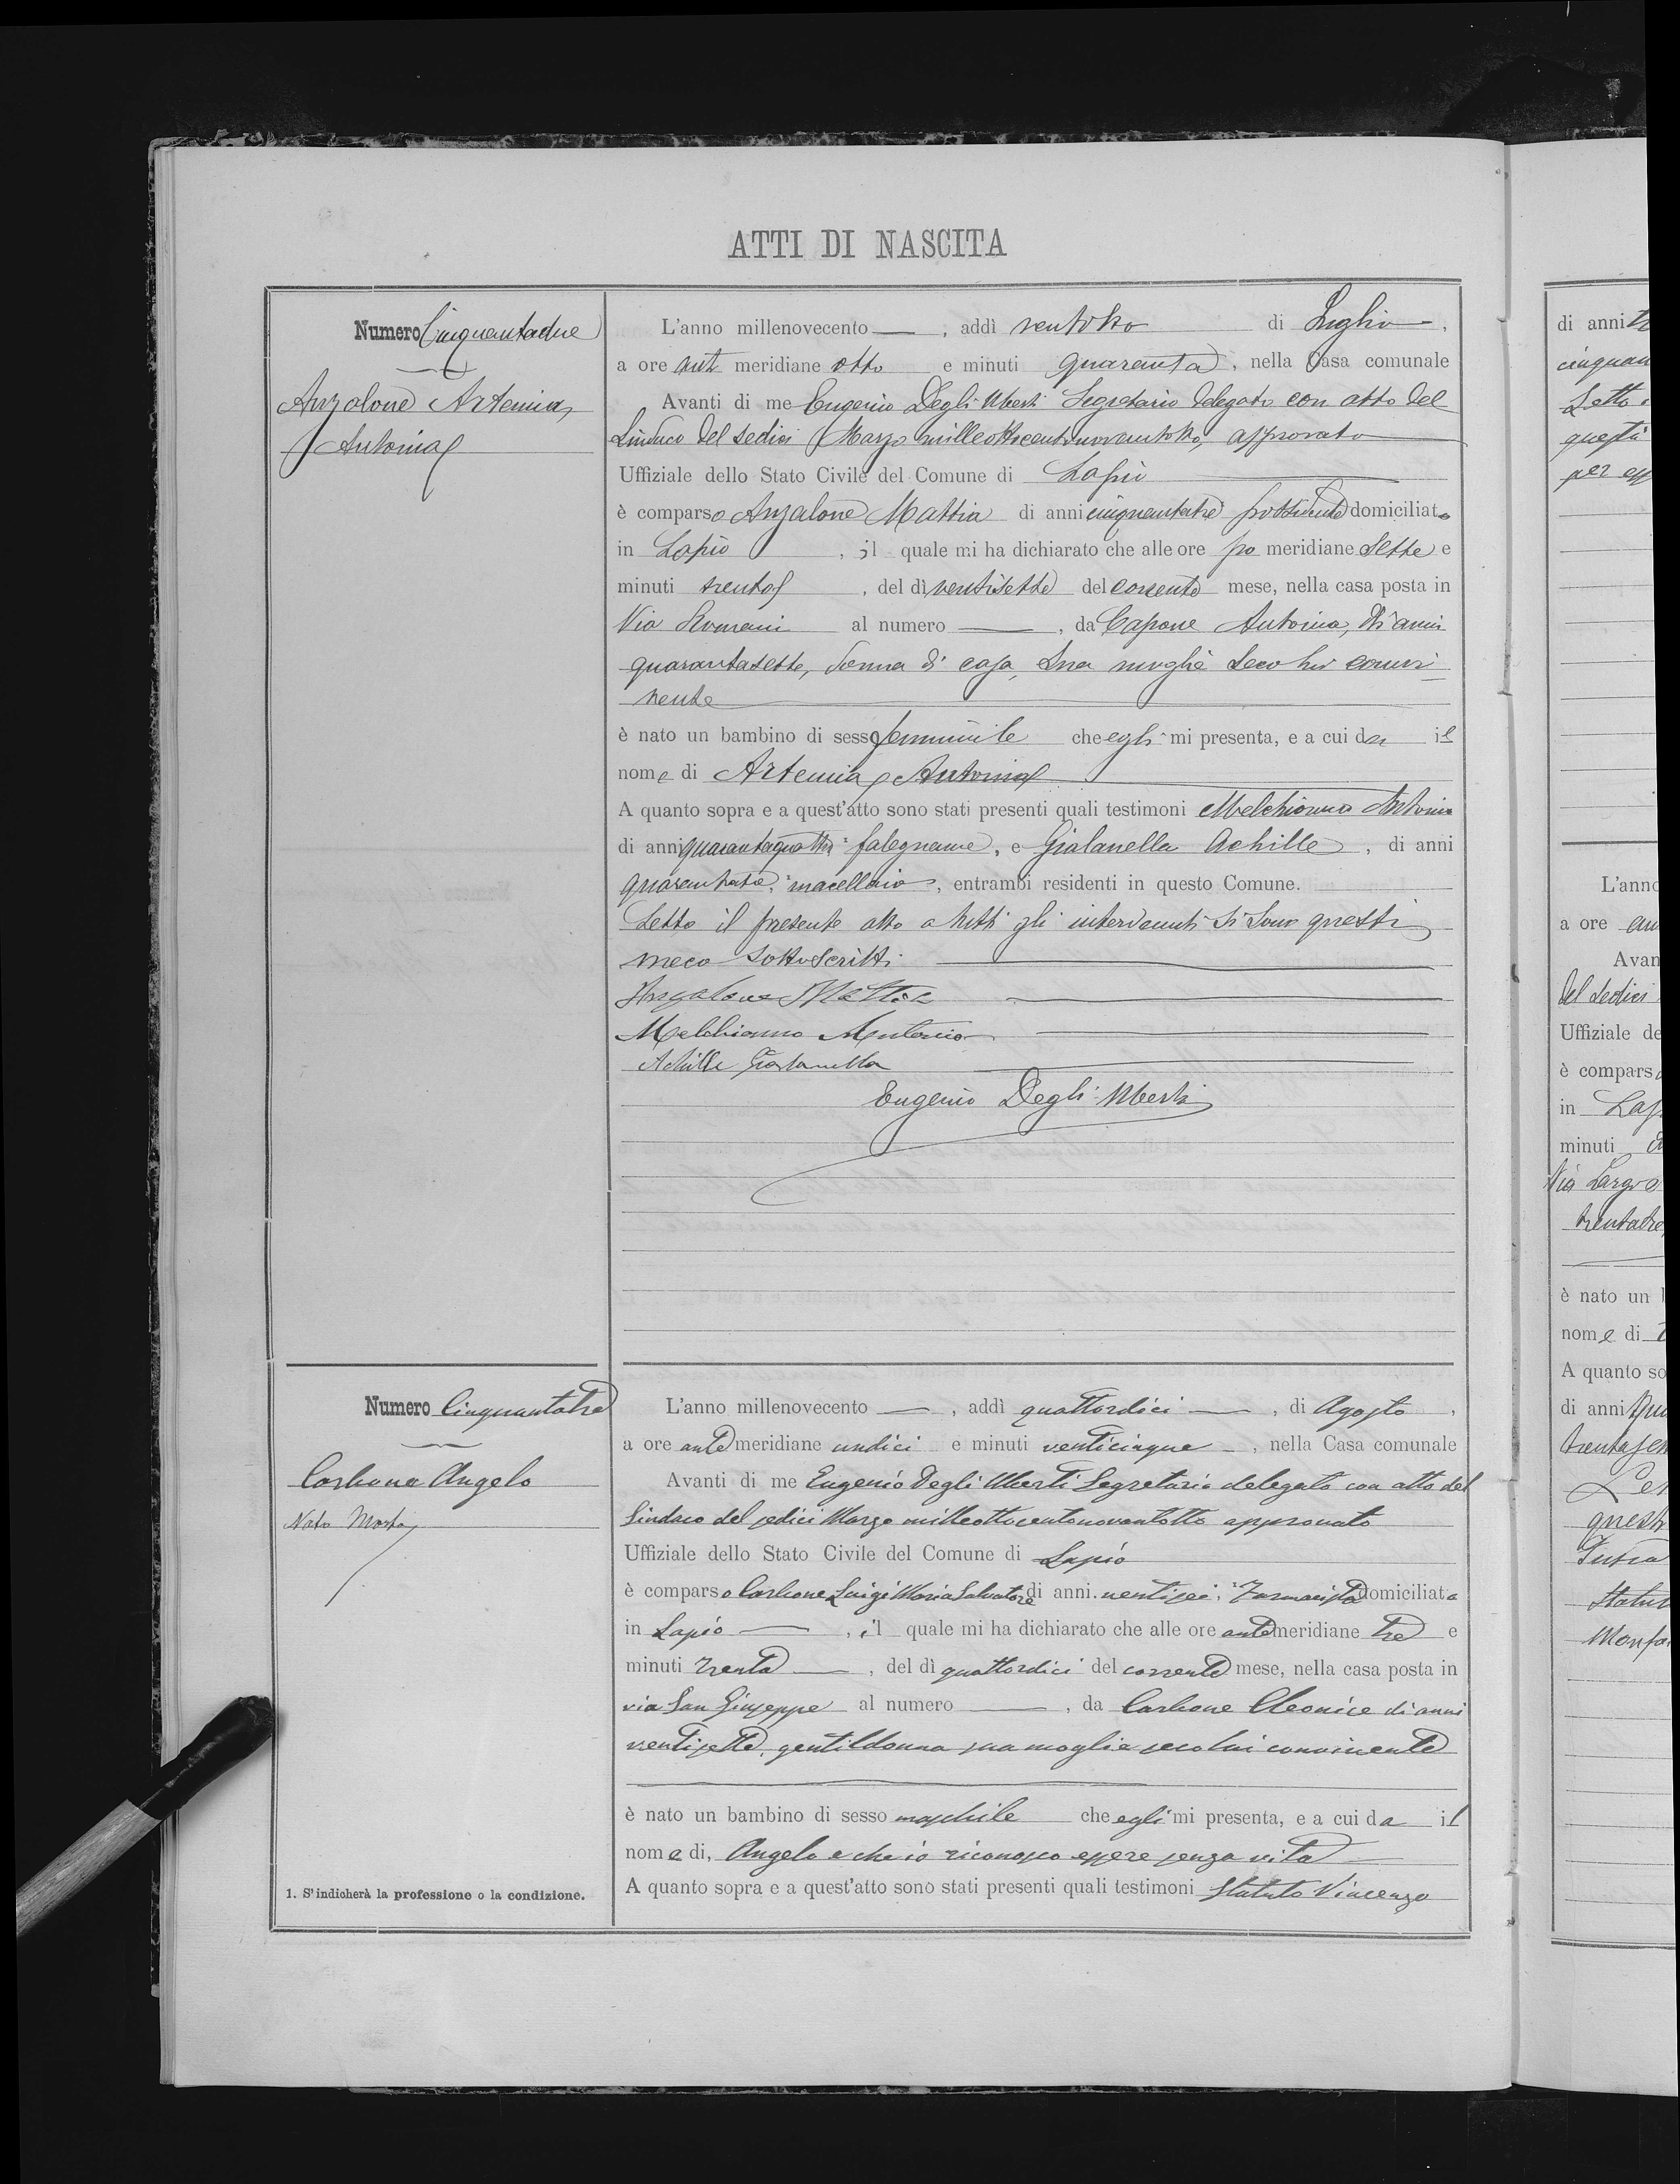 ATTI DI NASCITA
Numero Cinquantadue
Anzalone Artemia,
Antonia
L'anno millenovecento —, addì ventotto di Luglio —,
a ore anti meridiane otto e minuti quaranta, nella Casa comunale
Avanti di me Eugenio Degli Uberti Segretario delegato con atto del
Sindaco del sedici Marzo milleottocentonovantotto, approvato
Uffiziale dello Stato Civile del Comune di Lapio
è comparso Anzalone Mattia di anni cinquantatre possidente domiciliato
in Lapio, il quale mi ha dichiarato che alle ore po meridiane sette e
minuti trenta, del dì ventisette del corrente mese, nella casa posta in
Via Romani al numero —, da Capone Antonia, di anni
quarantasette, donna di casa, sua moglie seco lui convi
vente
è nato un bambino di sesso femminile che egli mi presenta, e a cui da il
nome di Artemia, Antonia
A quanto sopra e a quest'atto sono stati presenti quali testimoni Melchionno Antonio
di anni quarantaquattro falegname, e Gialanella Achille, di anni
macellaio, entrambi residenti in questo Comune.
Letto il presente atto a tutti gli intervenuti si sono questi
meco sottoscritti
Anzalone Mattia
Melchionno Antonio
Achille Gialanella
Eugenio Degli Uberti
Numero Cinquantatre
Carbone Angelo
Nato Morto
L'anno millenovecento —, addì quattordici —, di Agosto,
a ore ante meridiane undici e minuti venticinque —, nella Casa comunale
Avanti di me Eugenio Degli Uberti Segretario delegato con atto del
Sindaco del sedici Marzo milleottocentonovantotto approvato
Uffiziale dello Stato Civile del Comune di Lapio
è comparso Carbone Luigi Maria Salvatore di anni ventisei, Farmacista domiciliato
in Lapio —, il quale mi ha dichiarato che alle ore ante meridiane tre e
minuti trenta —, del dì quattordici del corrente mese, nella casa posta in
via San Giuseppe al numero —, da Carbone Cleonice di anni
ventisette, gentildonna sua moglie seco lui convivente
è nato un bambino di sesso maschile che egli mi presenta, e a cui da il
nome di, Angelo e che io riconosco essere senza vita
A quanto sopra e a quest'atto sono stati presenti quali testimoni Statuto Vincenzo
1. S'indicherà la professione o la condizione.
di anni
cinquan
Letto
questi
per
L'anno
a ore
Avan
del sedici
Uffiziale de
è compars
in Lap
minuti
Via Largo
trentatre
è nato un
nome di
A quanto so
di anni
questi
Statut